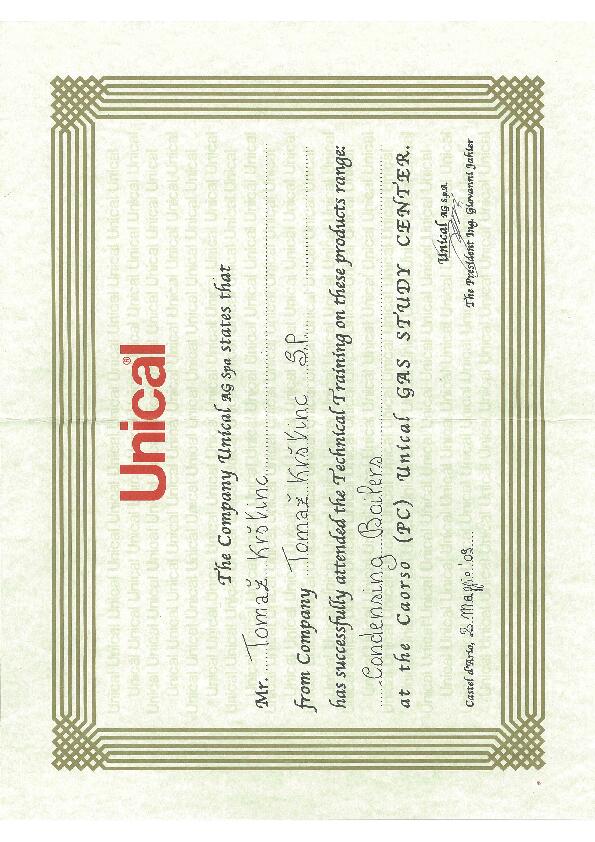 Unical®
The Company Unical AG Spa states that
Mr. Tomaž Krškinc
from Company Tomaž Krškinc S.P.
has successfully attended the Technical Training on these products range:
Condensing Boilers
at the Caorso (PC) Unical GAS STUDY CENTER.
Unical AG S.p.A.
Castel d'Ario, 2. '03
The President Ing. Giovanni Jahier